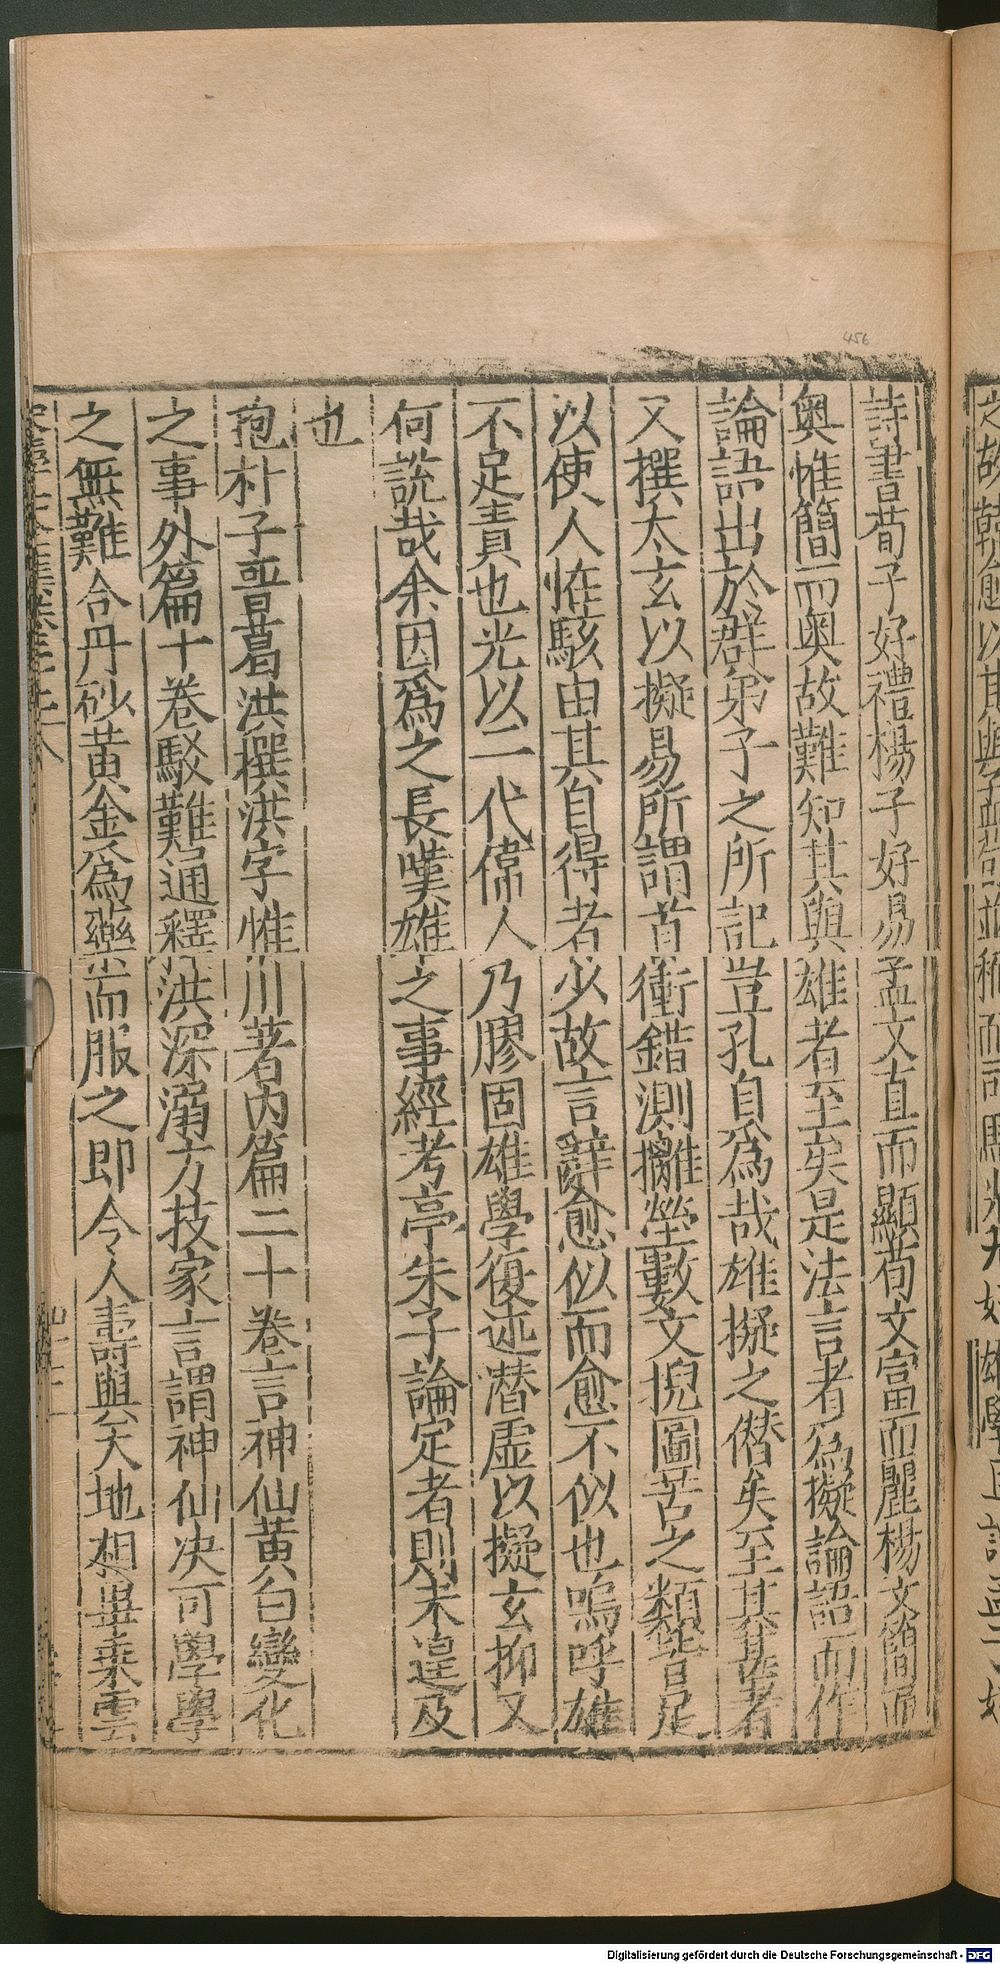 詩書荀子好禮楊子好易孟文直而顯荀文富而麗楊文簡而
奥惟簡而奥故難知其與雄者至矣是法言者爲擬論語而作
論語出於群弟子之所記豈孔自爲哉雄擬之僣矣至其甚者
又撰太玄以擬易所謂首衝錯測攡瑩數文掜圖告之類皆足
以使人恠駭由其自得者少故言辭愈似而愈不似也嗚呼雄
不足責也光以二代偉人乃膠固雄學復述潜虚以擬玄抑又
何說哉余因爲之長嘆雄之事經考亭朱子論定者則未遑及
也
孢朴子晋葛洪撰洪字惟川著内篇二十卷言神仙黄白變化
之事外篇十卷駁難通釋洪深溺方技家言謂神仙决可學學
之無難合丹砂黄金爲藥而服之即令人壽與天地相畢乗雲
456
Digitalisierung gefördert durch die Deutsche Forschungsgemeinschaft - DFG